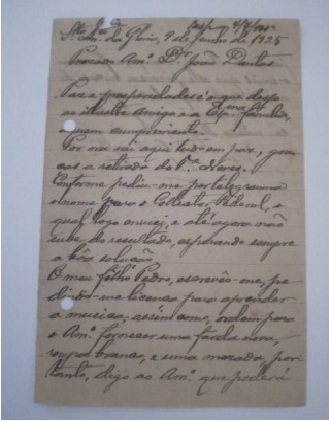 9 de Junho de 1925
Prezado Amº. Dr. João Dantas
Paz e prosperidades é o que desejo
ao illustre amigo e a Exma. familia,
quem cumprimento.
Por ora vai aqui tudo em paz,
a retirada de Neves.
Conforme pediu-me por telegramma
o nome para o Collector Federal, o
qual logo enviei, e até agora não
sube do resultado, esperando sempre
a bôa solução.
O meu filho Pedro, escreveu-me, pe
dindo-me licença para aprender
a musica, assim como, ordem para
o Amº. fornecer uma farda nova,
roupa branca, e uma morada, por
tanto, digo ao Amº. que poderá